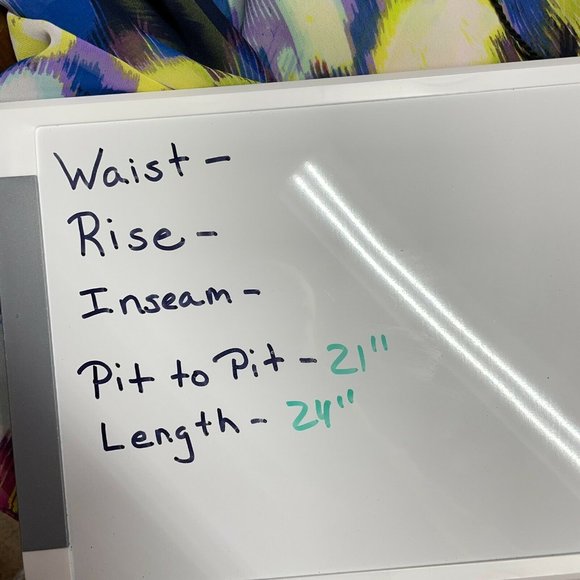 Waist -
Rise -
Inseam -
Pit to Pit - 21"
Length - 24"